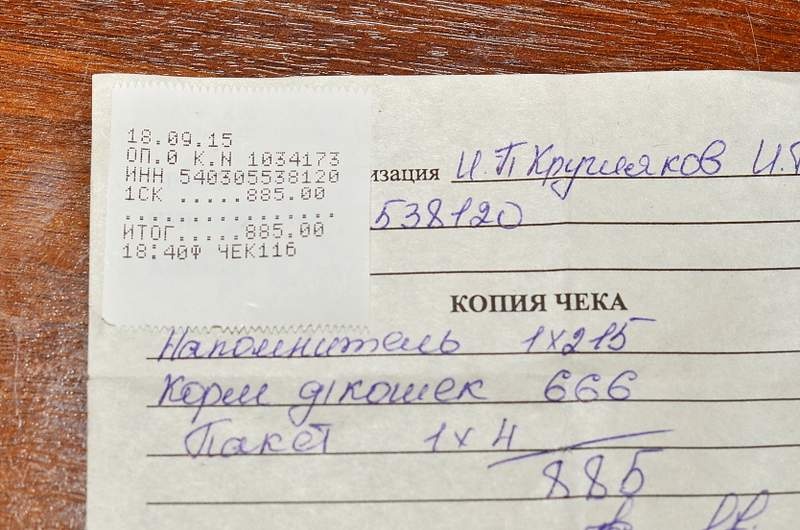 18.09.15
ОП.0 К.N 1034173
ИНН 540305538120
1СК .....885.00
................
ИТОГ.....885.00
18:40Ф ЧЕК116
изация И.П Кругляков И.
538120
КОПИЯ ЧЕКА
Наполнитель 1х215
Корм д/кошек 666
Пакет 1х4
885